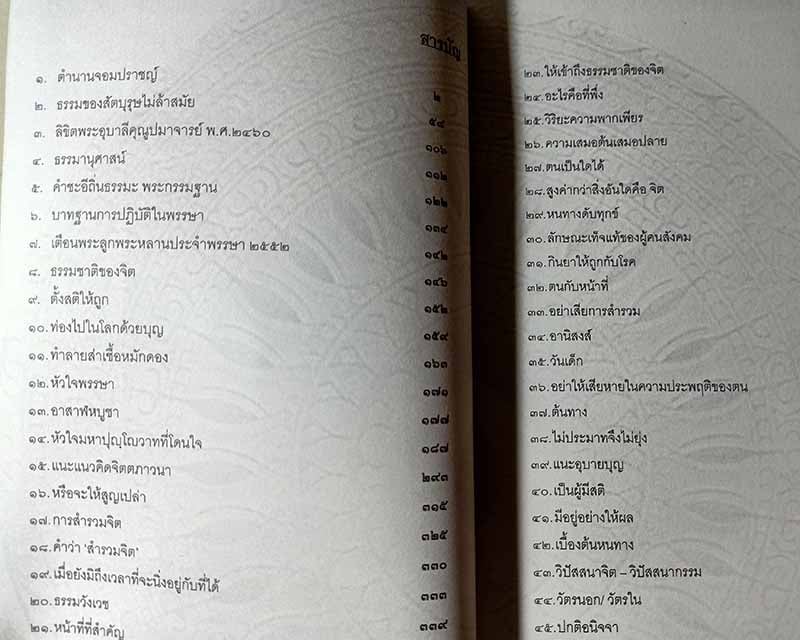 สารบัญ
๑. ตำนานจอมปราชญ์ ๒
๒. ธรรมของสัตบุรุษไม่ล้าสมัย ๕๔
๓. ลิขิตพระอุบาลีคุณูปมาจารย์ พ.ศ.๒๔๖๐ ๑๐๖
๔. ธรรมานุศาสน์ ๑๑๒
๕. คำชะอีถิ่นธรรมะ พระกรรมฐาน ๑๒๒
๖. บาทฐานการปฏิบัติในพรรษา ๑๓๔
๗. เตือนพระลูกพระหลานประจำพรรษา ๒๕๕๒ ๑๔๒
๘. ธรรมชาติของจิต ๑๔๖
๙. ตั้งสติให้ถูก ๑๕๒
๑๐. ท่องไปในโลกด้วยบุญ ๑๕๙
๑๑. ทำลายส่าเชื้อหมักดอง ๑๖๓
๑๒. หัวใจพรรษา ๑๗๑
๑๓. อาสาฬหบูชา ๑๗๗
๑๔. หัวใจมหาปุญฺโญวาทที่โดนใจ ๑๘๗
๑๕. แนะแนวคิดจิตตภาวนา ๒๙๓
๑๖. หรือจะให้สูญเปล่า ๓๑๕
๑๗. การสำรวมจิต ๓๒๕
๑๘. คำว่า 'สำรวมจิต' ๓๓๐
๑๙. เมื่อยังมิถึงเวลาที่จะนิ่งอยู่กับที่ได้ ๓๓๓
๒๐. ธรรมวังเวช ๓๓๙
๒๑. หน้าที่ที่สำคัญ
๒๓. ให้เข้าถึงธรรมชาติของจิต
๒๔. อะไรคือที่พึ่ง
๒๕. วิริยะความพากเพียร
๒๖. ความเสมอต้นเสมอปลาย
๒๗. ตนเป็นใดได้
๒๘. สูงค่ากว่าสิ่งอันใดคือ จิต
๒๙. หนทางดับทุกข์
๓๐. ลักษณะเท็จแท้ของผู้คนสังคม
๓๑. กินยาให้ถูกกับโรค
๓๒. ตนกับหน้าที่
๓๓. อย่าเสียการสำรวม
๓๔. อานิสงส์
๓๕. วันเด็ก
๓๖. อย่าให้เสียหายในความประพฤติของตน
๓๗. ต้นทาง
๓๘. ไม่ประมาทจึงไม่ยุ่ง
๓๙. แนะอุบายบุญ
๔๐. เป็นผู้มีสติ
๔๑. มีอยู่อย่างให้ผล
๔๒. เบื้องต้นหนทาง
๔๓. วิปัสสนาจิต – วิปัสสนากรรม
๔๔. วัตรนอก/ วัตรใน
๔๕. ปกติอนิจจา